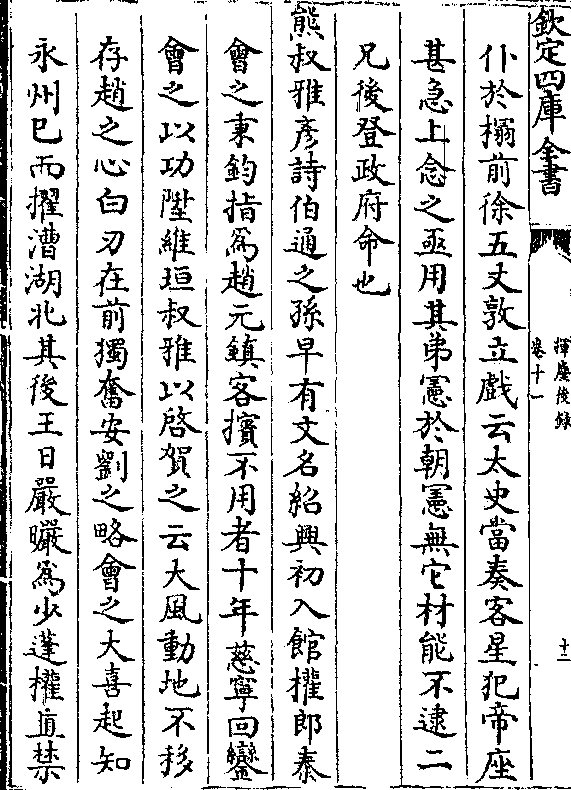 欽定四庫全書
揮麈後錄
卷十一
十三
仆於榻前徐五丈敦立戲云太史當奏客星犯帝座
甚急上念之亟用其弟憲於朝憲無它材能不逮二
兄後登政府命也
熊叔雅彥詩伯通之孫早有文名紹興初入館權郎秦
會之秉鈞指為趙元鎮客擯不用者十年慈寧回鑾
會之以功陞維垣叔雅以啓賀之云大風動地不移
存趙之心白刃在前獨奮安劉之略會之大喜起知
永州已而擢漕湖北其後王日嚴曮為少蓬權直禁